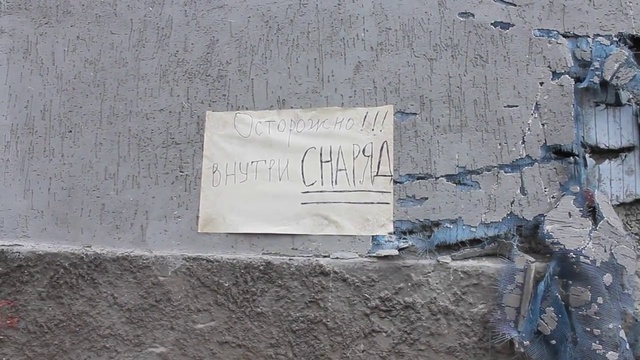 Осторожно!!!
ВНУТРИ СНАРЯД